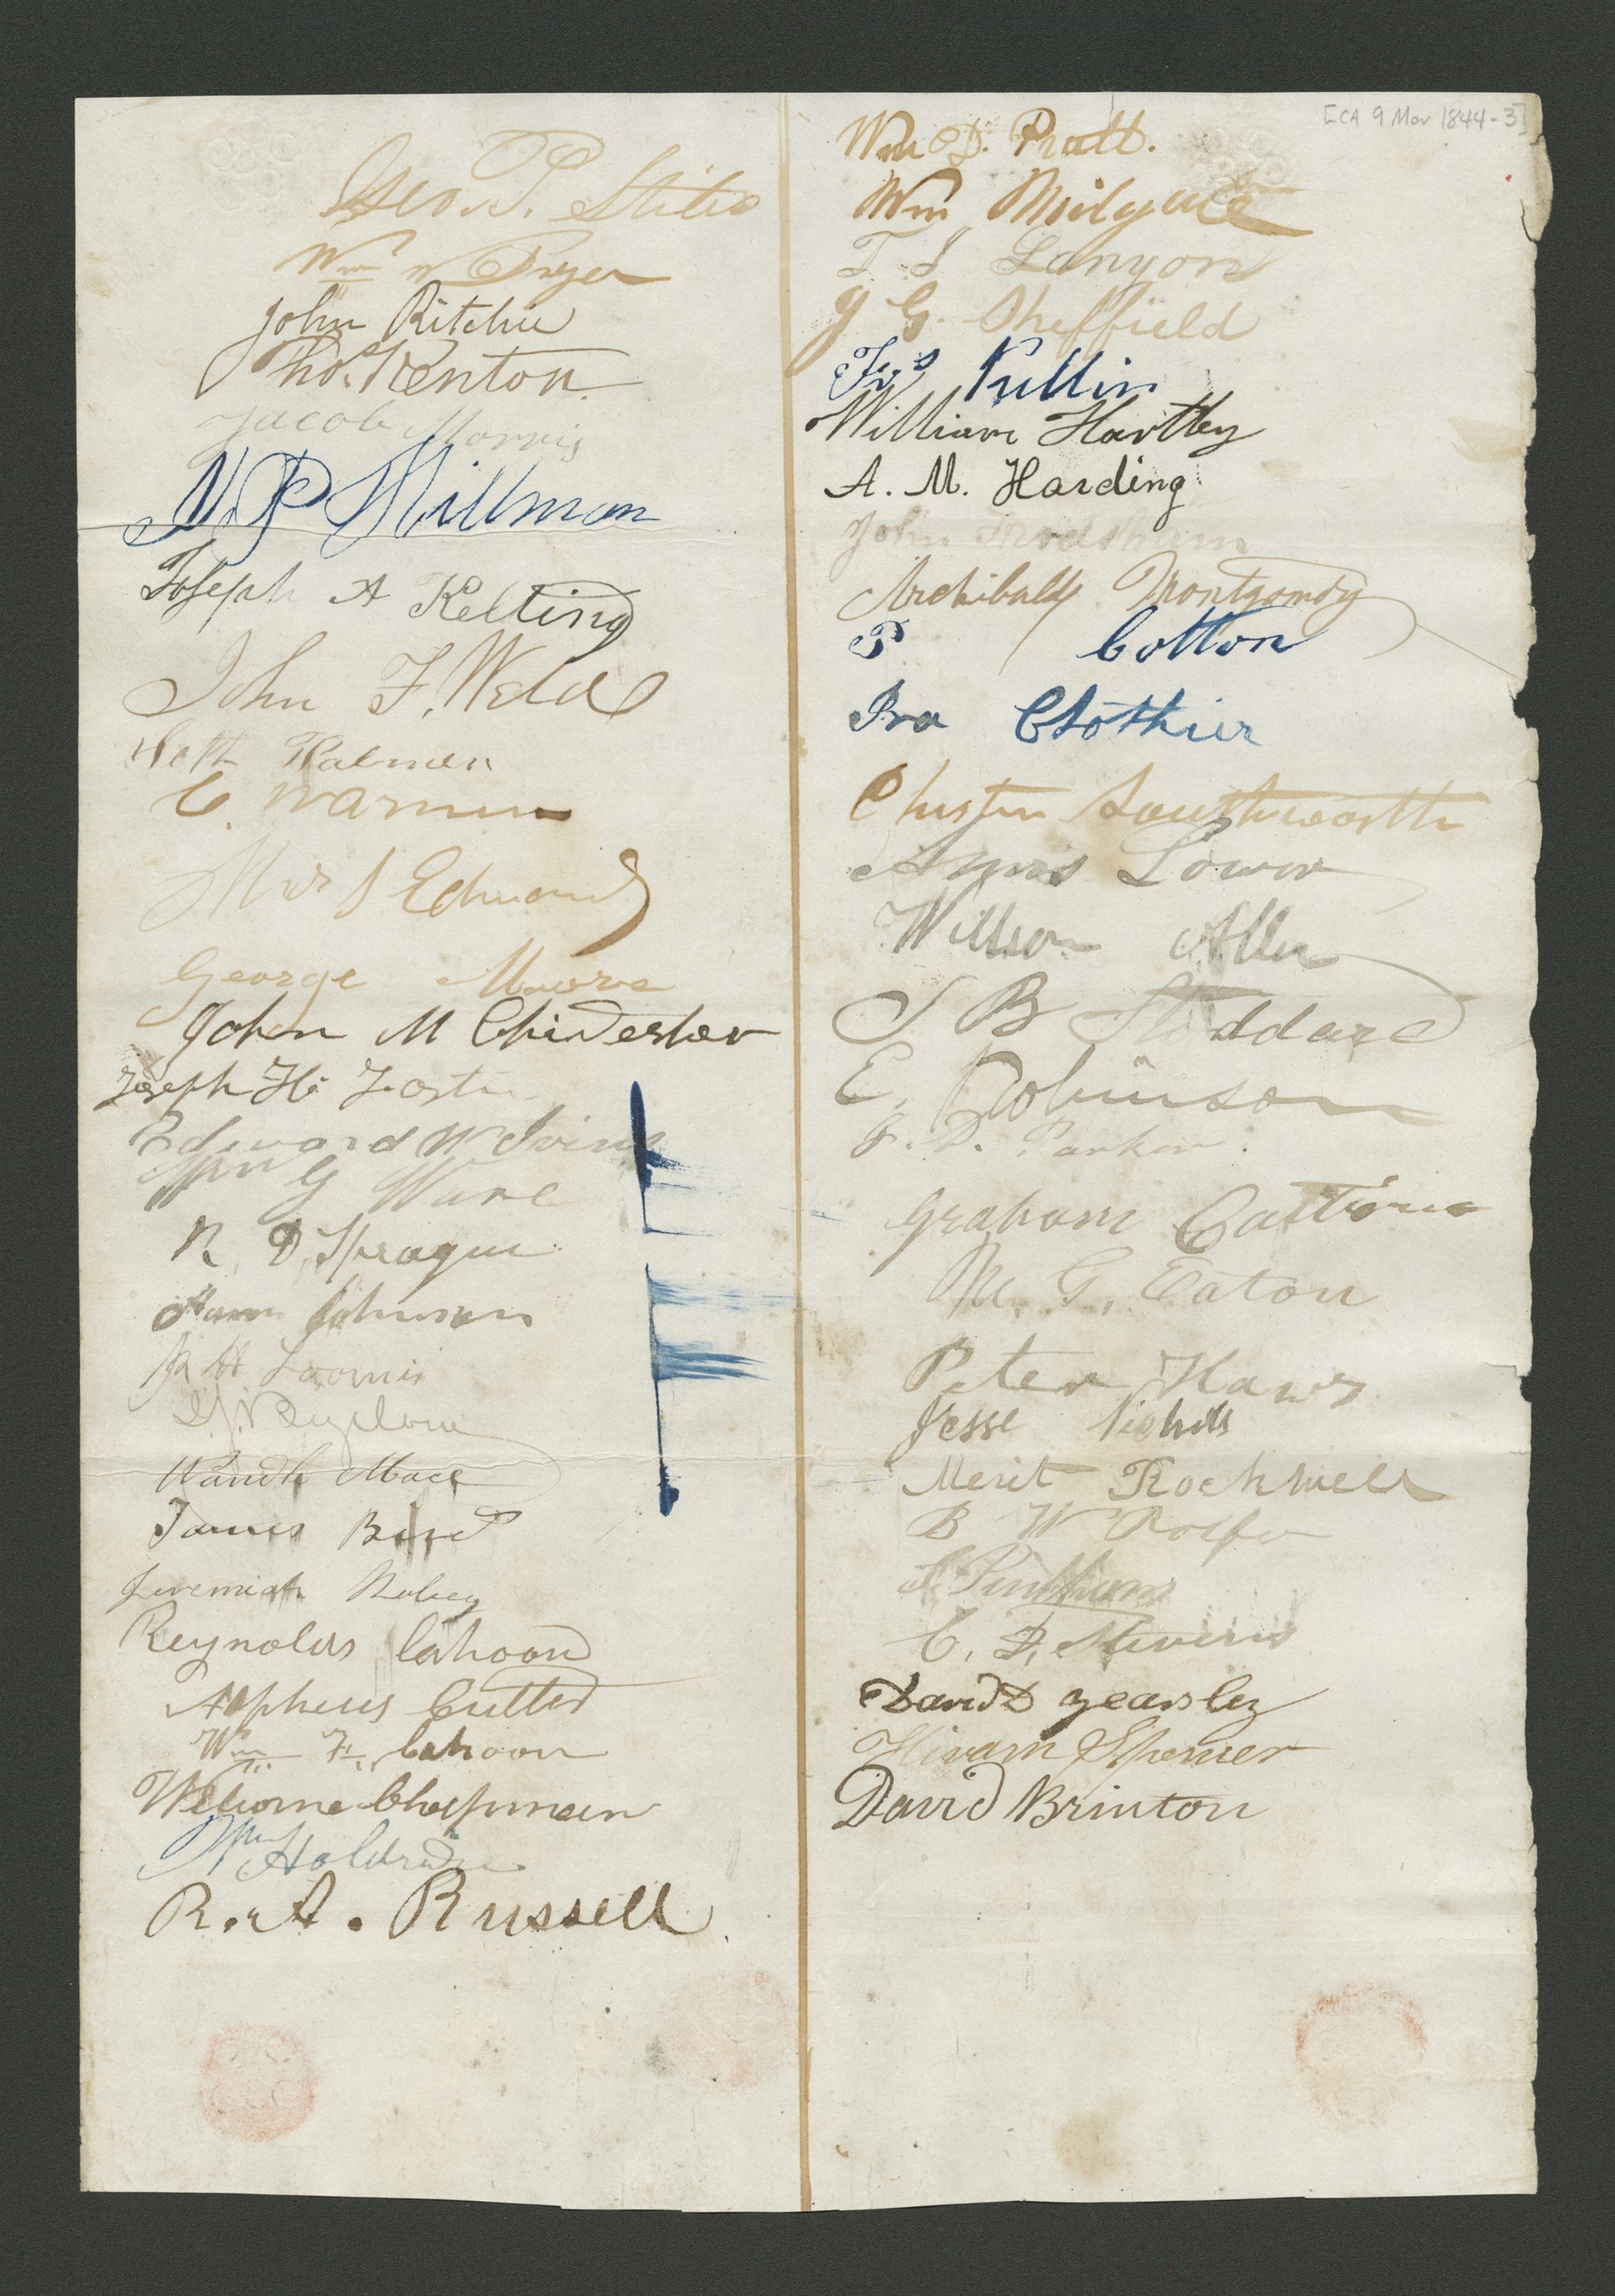 Geo. P. Stiles
Wm W Pryer
John Ritchie
Thos. Kenton
Jacob Morris
N. P. Hillman
Joseph A Kelting
John F. Weld
Palmer
C. Warner
Mrs Edwards
George Moore
John M Chidester
Joseph H. Foster
Edward W Ivins
Wm G Ware
R. D. Sprague
Aaron Johnson
R H Loomis
Bigelow
Wandle Mace
James Bird
Jeremiah Robey
Reynolds Cahoon
Alpheus Cutler
Wm F. Cahoon
Welcome Chapman
Wm Holdridge
R. A. Russell
[CA 9 Mar 1844-3]
Wm D. Pratt.
Wm Midgace
T J Lanyon
J G. Sheffield
Fr's Pullin
William Hartley
A. M. Harding
John
Archibald Montgomery
P Cotton
Ira Clothier
Chester Southworth
Lower
Willson Allen
J B Stoddard
E. Robinson
J. D. Parker.
Graham Coltrin
M. G. Eaton
Peter Haws
Jesse Nichols
Merit Rockwell
B W Rolfe
Pinkham
C. D. Stevens
David D Yearsley
Hiram Spencer
David Brinton